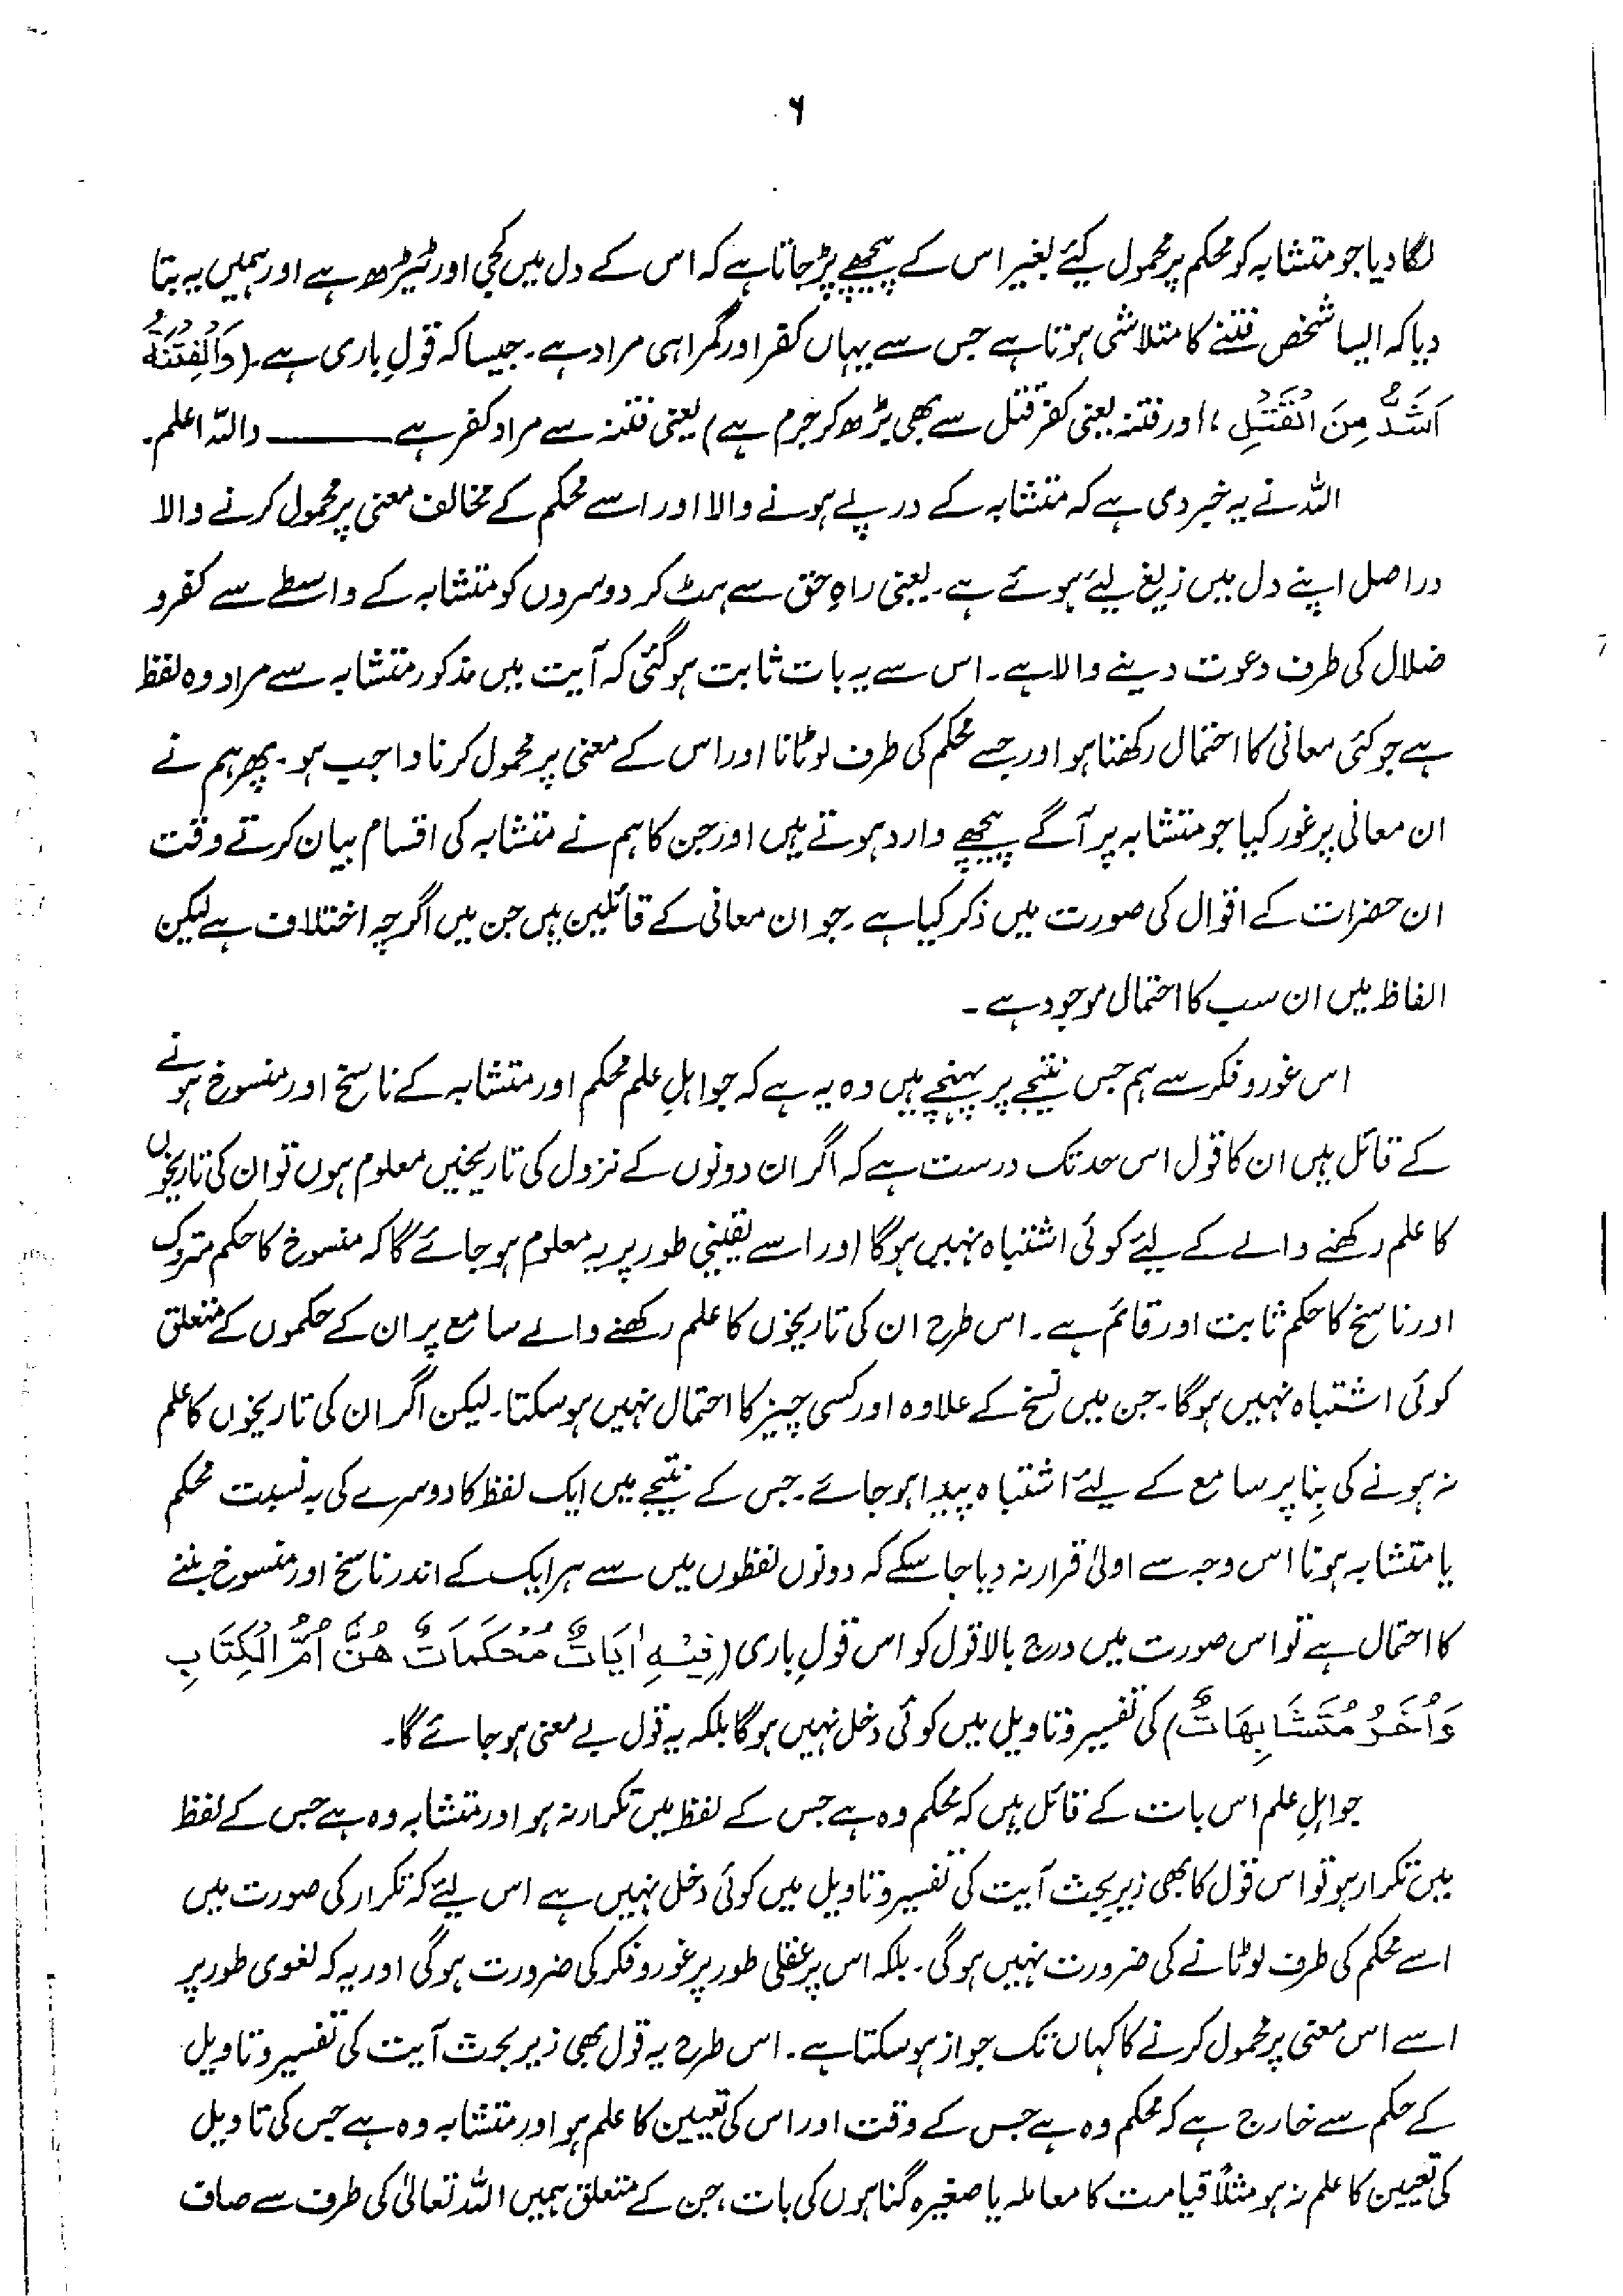 ۶
لگا دیا جو متشابہ کو محکم پر محمول کیئے بغیر اس کے پیچھے پڑ جاتا ہے کہ اس کے دل میں کجی اور ٹیڑھ ہے اور ہمیں یہ بتا
دیا کہ ایسا شخص فتنے کا متلاشی ہوتا ہے جس سے یہاں کفر اور گمراہی مراد ہے۔ جیسا کہ قولِ باری ہے۔ (وَالْفِتْنَةُ
اَشَدُّ مِنَ الْقَتْلِ، اور فتنہ یعنی کفر قتل سے بھی بڑھ کر جرم ہے) یعنی فتنہ سے مراد کفر ہے ——— واللہ اعلم۔
اللہ نے یہ خبر دی ہے کہ متشابہ کے درپے ہونے والا اور اسے محکم کے مخالف معنی پر محمول کرنے والا
دراصل اپنے دل میں زیغ لیئے ہوئے ہے۔ یعنی راہِ حق سے ہٹ کر دوسروں کو متشابہ کے واسطے سے کفر و
ضلال کی طرف دعوت دینے والا ہے۔ اس سے یہ بات ثابت ہو گئی کہ آیت میں مذکور متشابہ سے مراد وہ لفظ
ہے جو کئی معانی کا احتمال رکھتا ہو اور جسے محکم کی طرف لوٹانا اور اس کے معنی پر محمول کرنا واجب ہو۔ پھر ہم نے
ان معانی پر غور کیا جو متشابہ پر آگے پیچھے وارد ہوتے ہیں اور جن کا ہم نے متشابہ کی اقسام بیان کرتے وقت
ان حضرات کے اقوال کی صورت میں ذکر کیا ہے۔ جو ان معانی کے قائلین ہیں جن میں اگرچہ اختلاف ہے لیکن
الفاظ میں ان سب کا احتمال موجود ہے۔
اس غور و فکر سے ہم جس نتیجے پر پہنچے ہیں وہ یہ ہے کہ جو اہلِ علم محکم اور متشابہ کے ناسخ اور منسوخ ہونے
کے قائل ہیں ان کا قول اس حد تک درست ہے کہ اگر ان دونوں کے نزول کی تاریخیں معلوم ہوں تو ان کی تاریخوں
کا علم رکھنے والے کے لیئے کوئی اشتباہ نہیں ہوگا اور اسے یقینی طور پر یہ معلوم ہو جائے گا کہ منسوخ کا حکم متروک
اور ناسخ کا حکم ثابت اور قائم ہے۔ اس طرح ان کی تاریخوں کا علم رکھنے والے سامع پر ان کے حکموں کے متعلق
کوئی اشتباہ نہیں ہوگا۔ جن میں نسخ کے علاوہ اور کسی چیز کا احتمال نہیں ہو سکتا۔ لیکن اگر ان کی تاریخوں کا علم
نہ ہونے کی بِنا پر سامع کے لیئے اشتباہ پیدا ہو جائے۔ جس کے نتیجے میں ایک لفظ کا دوسرے کی بہ نسبت محکم
یا متشابہ ہونا اس وجہ سے اولیٰ قرار نہ دیا جا سکے کہ دونوں لفظوں میں سے ہر ایک کے اندر ناسخ اور منسوخ بننے
کا احتمال ہے تو اس صورت میں درج بالا قول کو اس قولِ باری (فِيْهِ اٰيَاتٌ مُّحْكَمَاتٌ هُنَّ اُمُّ الْكِتَابِ
وَاُخَرُ مُتَشَابِهَاتٌ) کی تفسیر و تاویل میں کوئی دخل نہیں ہوگا بلکہ یہ قول بے معنی ہو جائے گا۔
جو اہلِ علم اس بات کے قائل ہیں کہ محکم وہ ہے جس کے لفظ میں تکرار نہ ہو اور متشابہ وہ ہے جس کے لفظ
میں تکرار ہو تو اس قول کا بھی زیرِ بحث آیت کی تفسیر و تاویل میں کوئی دخل نہیں ہے اس لیئے کہ تکرار کی صورت میں
اسے محکم کی طرف لوٹانے کی ضرورت نہیں ہوگی۔ بلکہ اس پر عقلی طور پر غور و فکر کی ضرورت ہوگی اور یہ کہ لغوی طور پر
اسے اس معنی پر محمول کرنے کا کہاں تک جواز ہو سکتا ہے۔ اس طرح یہ قول بھی زیر بحث آیت کی تفسیر و تاویل
کے حکم سے خارج ہے کہ محکم وہ ہے جس کے وقت اور اس کی تعیین کا علم ہو اور متشابہ وہ ہے جس کی تاویل
کی تعیین کا علم نہ ہو مثلاً قیامت کا معاملہ یا صغیرہ گناہوں کی بات، جن کے متعلق ہمیں اللہ تعالیٰ کی طرف سے صاف